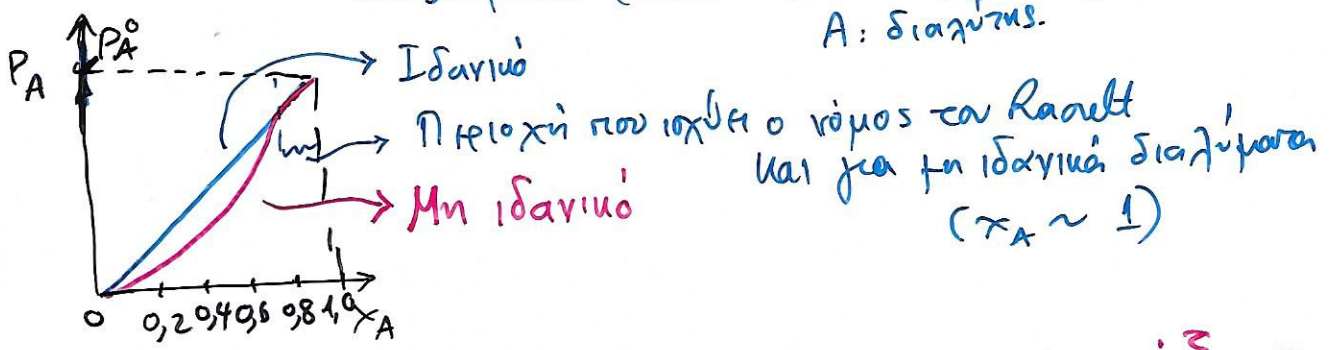 A: διαλύτης.
P_A
P_A^0
Ιδανικό
Περιοχή που ισχύει ο νόμος του Raoult
και για μη ιδανικά διαλύματα
(x_A ~ 1)
Μη ιδανικό
0 0,2 0,4 0,6 0,8 1,0 x_A